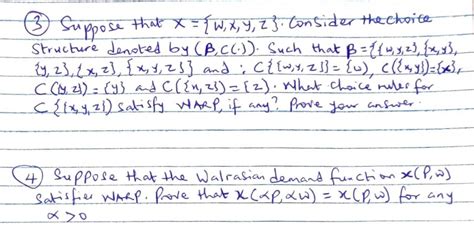 ③ Suppose that X = {w,x,y,z}. Consider the choice
Structure denoted by (β,C(.)). Such that β={{w,y,z},{x,y},
{y,z},{x,z},{x,y,z}} and ; C{{w,y,z}}={w}, C({x,y})={x},
C(y,z})={y} and C({x,z})={z}. What choice rules for
C{{x,y,z}) satisfy WARP, if any? Prove your answer.
④ Suppose that the Walrasian demand function x(P,w)
satisfies WARP. Prove that x(αP,αw) = x(P,w) for any
α>0